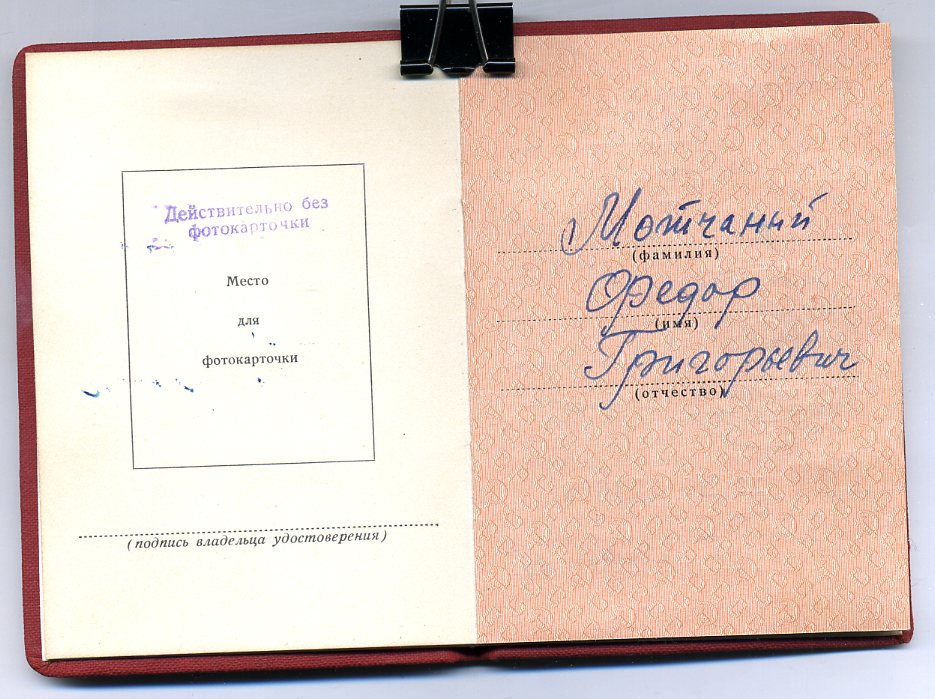 Действительно без
фотокарточки
Место
для
фотокарточки
(подпись владельца удостоверения)
Мотчаний
(фамилия)
Федор
(имя)
Григорьевич
(отчество)